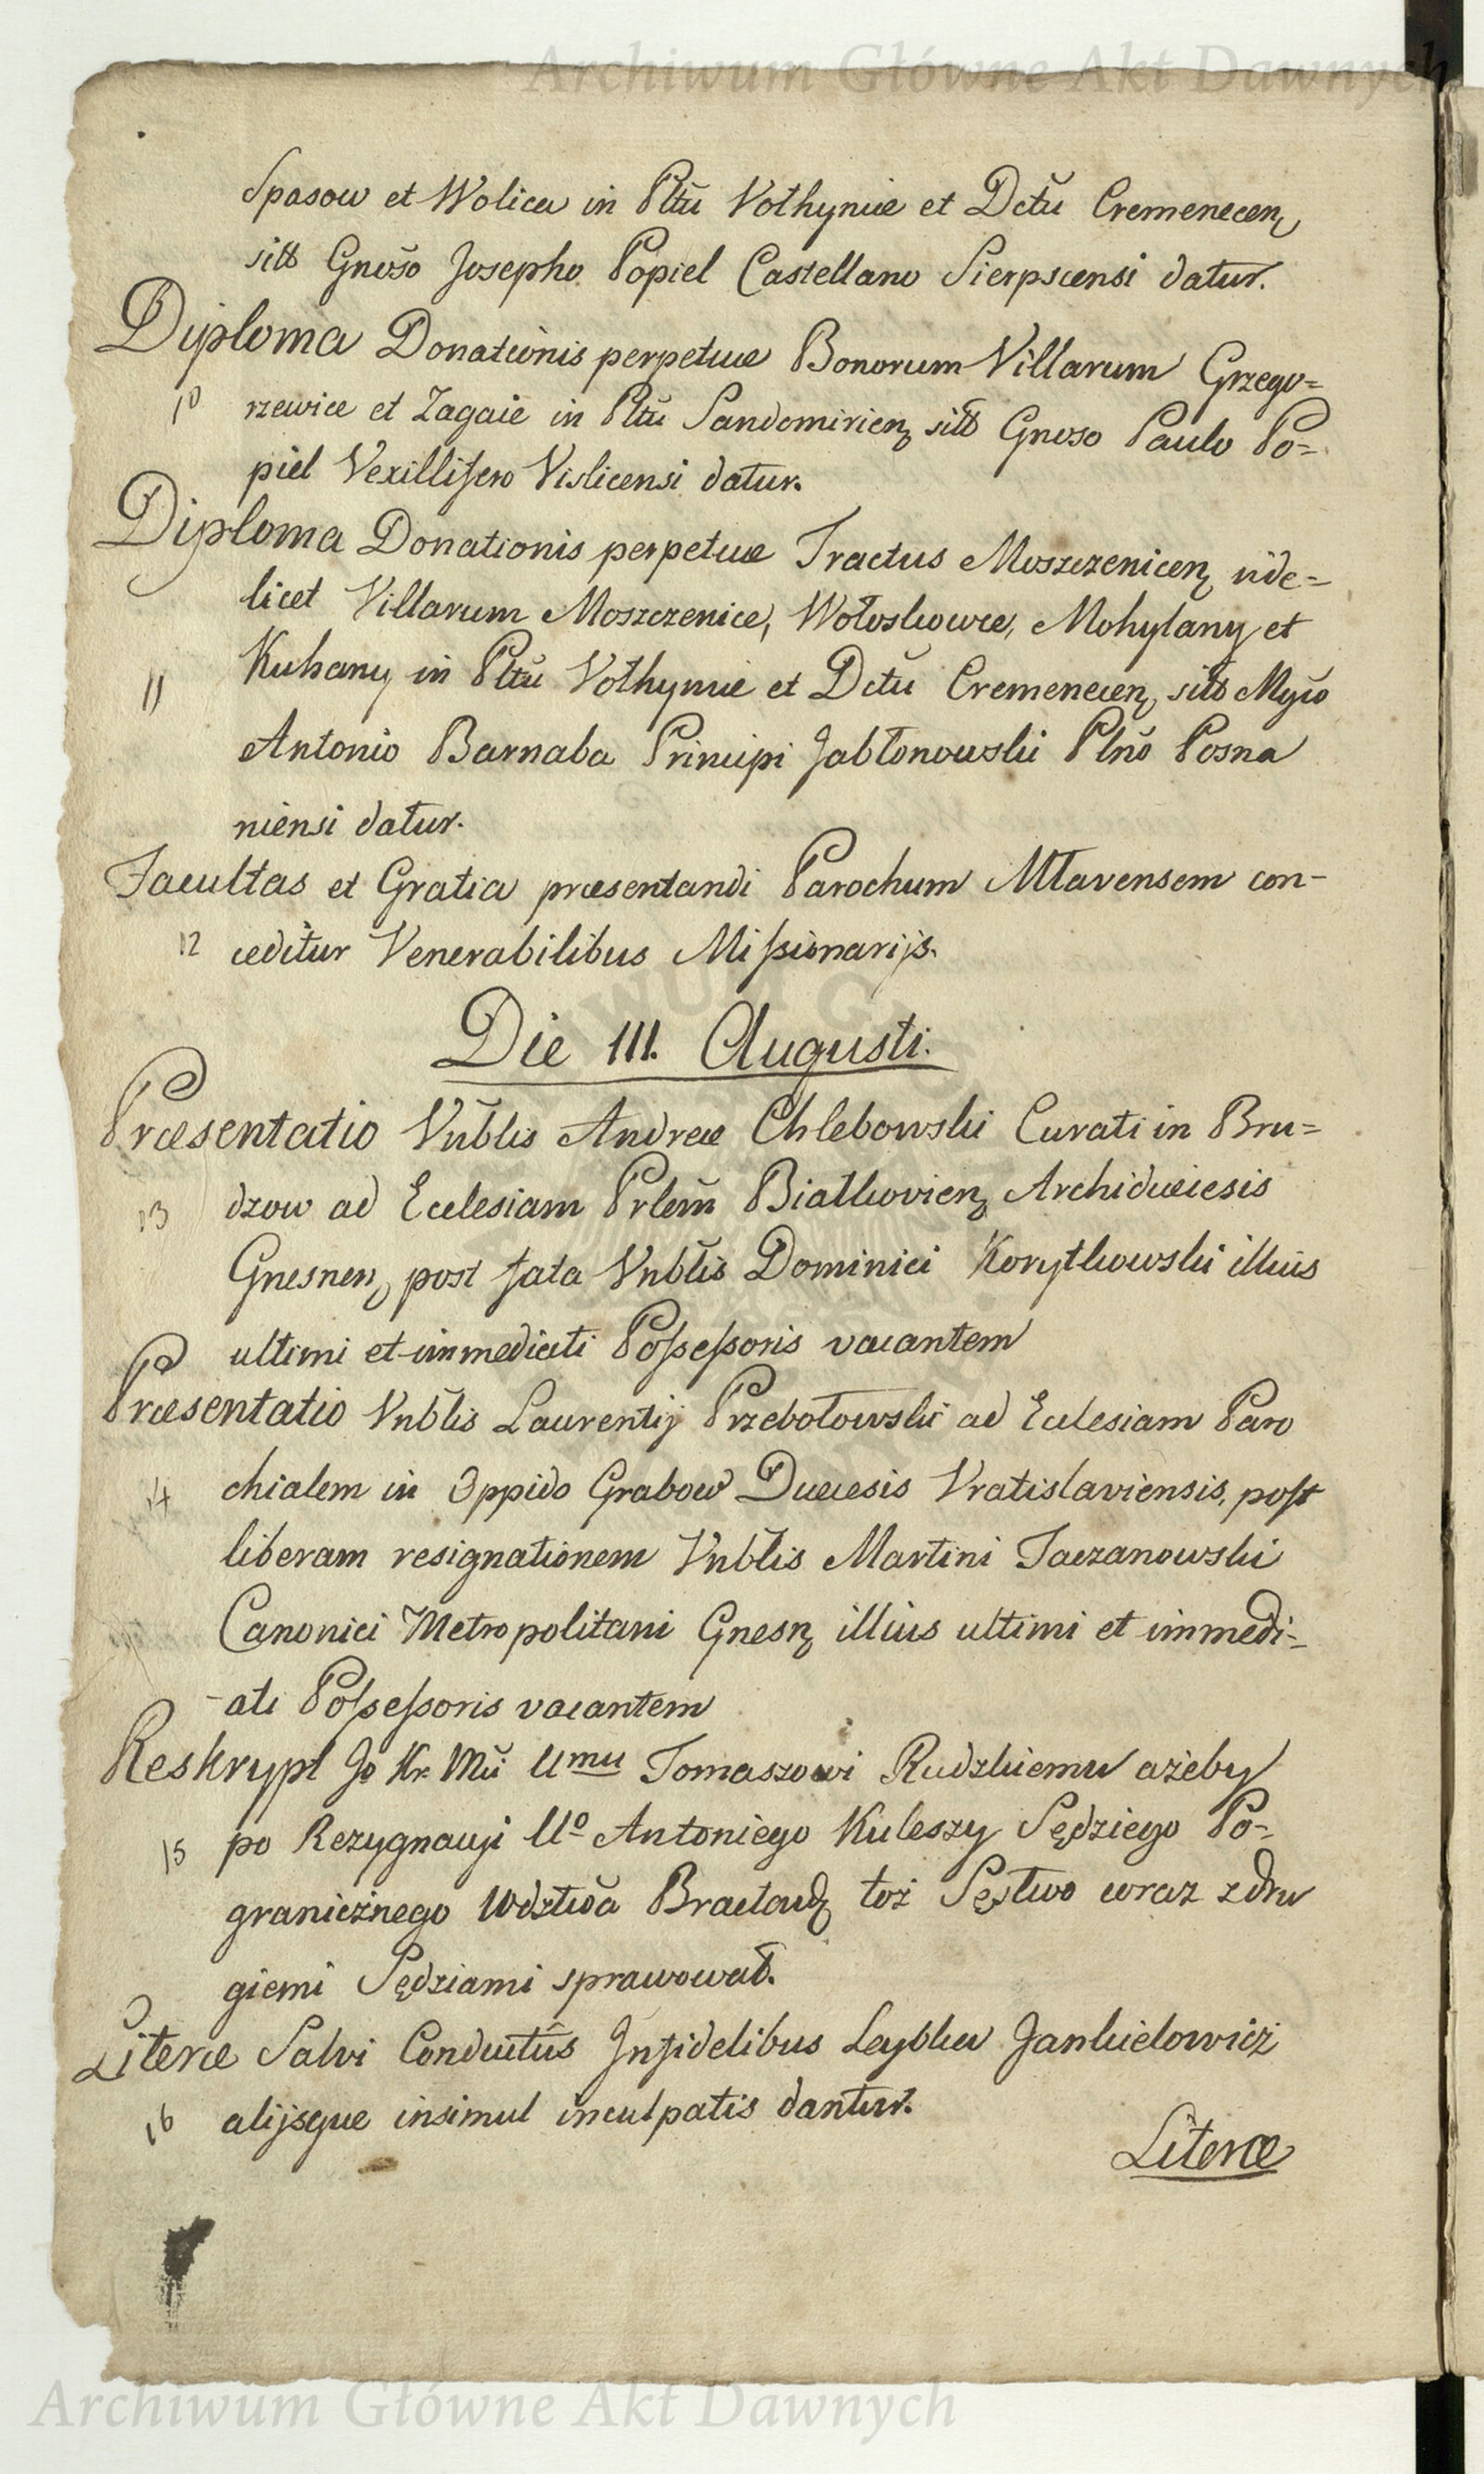 Archiwum Główne Akt Dawnych
Spasow et Wolica in Pltũ Volhyniæ et Dctũ Cremenecen
sitt Gnoso Josepho Popiel Castellano Sierpscensi datur.
Diploma Donationis perpetuæ Bonorum Villarum Grzego=
10 rzewice et Zagaie in Pltũ Sandomirien sitt Gnoso Paulo Po=
piel Vexillifero Vislicensi datur.
Diploma Donationis perpetuæ Tractus Moszczenicen vide=
licet Villarum Moszczenice, Wołoskowce, Mohylany et
11 Kuhany in Pltũ Volhyniæ et Dctũ Cremenecen sitt Mgco
Antonio Barnaba Principi Jabłonowski Plno Posna
niensi datur.
Facultas et Gratia præsentandi Parochum Mlavensem con-
12 ceditur Venerabilibus Missionarijs.
Die III. Augusti.
Præsentatio Vnblis Andreæ Chlebowski Curati in Bru=
13 dzow ad Ecclesiam Prlem Białkovien Archidiœcesis
Gnesnen post fata Vnblis Dominici Korytkowski illius
ultimi et immediati Possessoris vacantem
Præsentatio Vnblis Laurentij Przebołowski ad Ecclesiam Paro
14 chialem in Oppido Grabow Diœcesis Vratislaviensis, post
liberam resignationem Vnblis Martini Taczanowski
Canonici Metropolitani Gnesn illius ultimi et immedi-
-ati Possessoris vacantem
Reskrypt Jo Kr Mci Umu Tomaszowi Rudzkiemu ażeby
15 po Rezygnacyi Uo Antoniego Kuleszy Sędziego Po-
granicznego Wdztwa Bracław toż Sęstwo wraz z dru
giemi Sędziami sprawował.
Literæ Salvi Conductûs Infidelibus Leybka Jankielowicz
16 alijsque insimul inculpatis dantur.
Literæ
Archiwum Główne Akt Dawnych